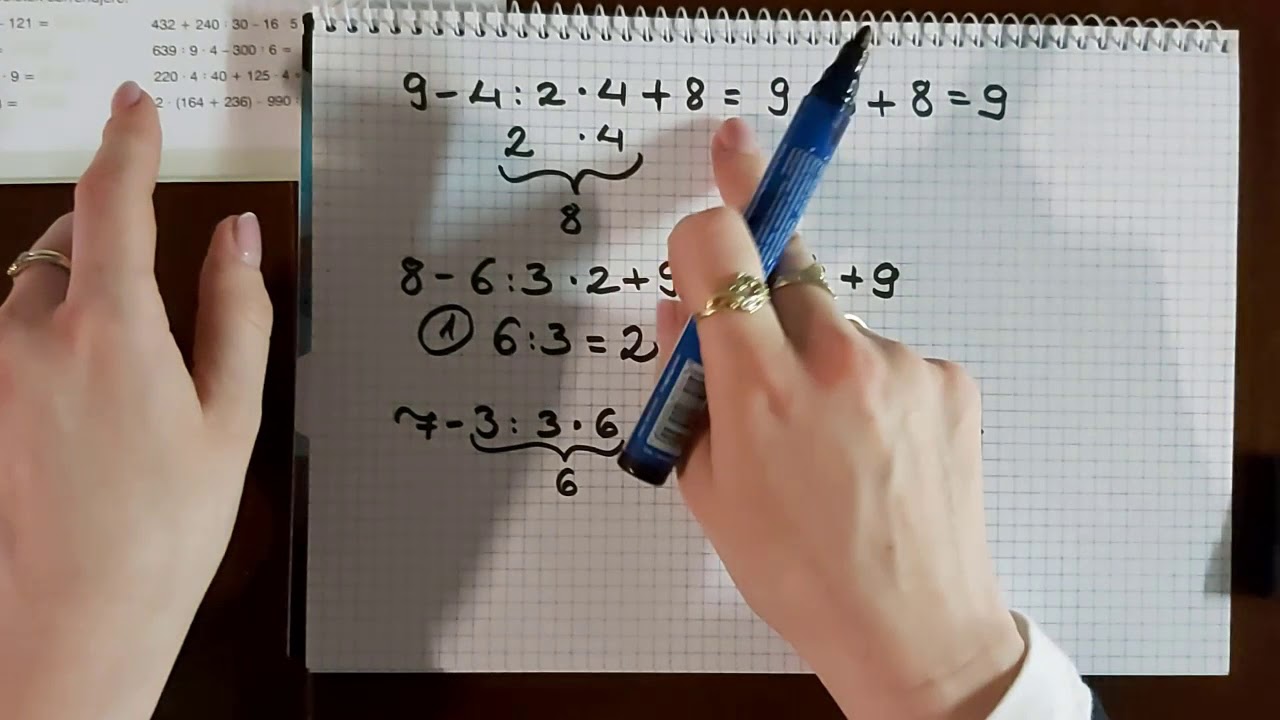 - 121 =
432 + 240 : 30 - 16 · 5
639 : 9 · 4 - 300 : 6 =
· 9 =
220 · 4 : 40 + 125 · 4 =
=
2 · (164 + 236) - 990 :
9 - 4 : 2 · 4 + 8 = 9 + 8 = 9
2 · 4
8
8 - 6 : 3 · 2 + 9 + 9
1 6 : 3 = 2
7 - 3 : 3 · 6
6